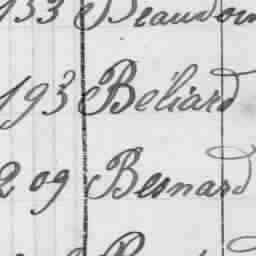 133 Beaudoin
193 Béliard
209 Besnard